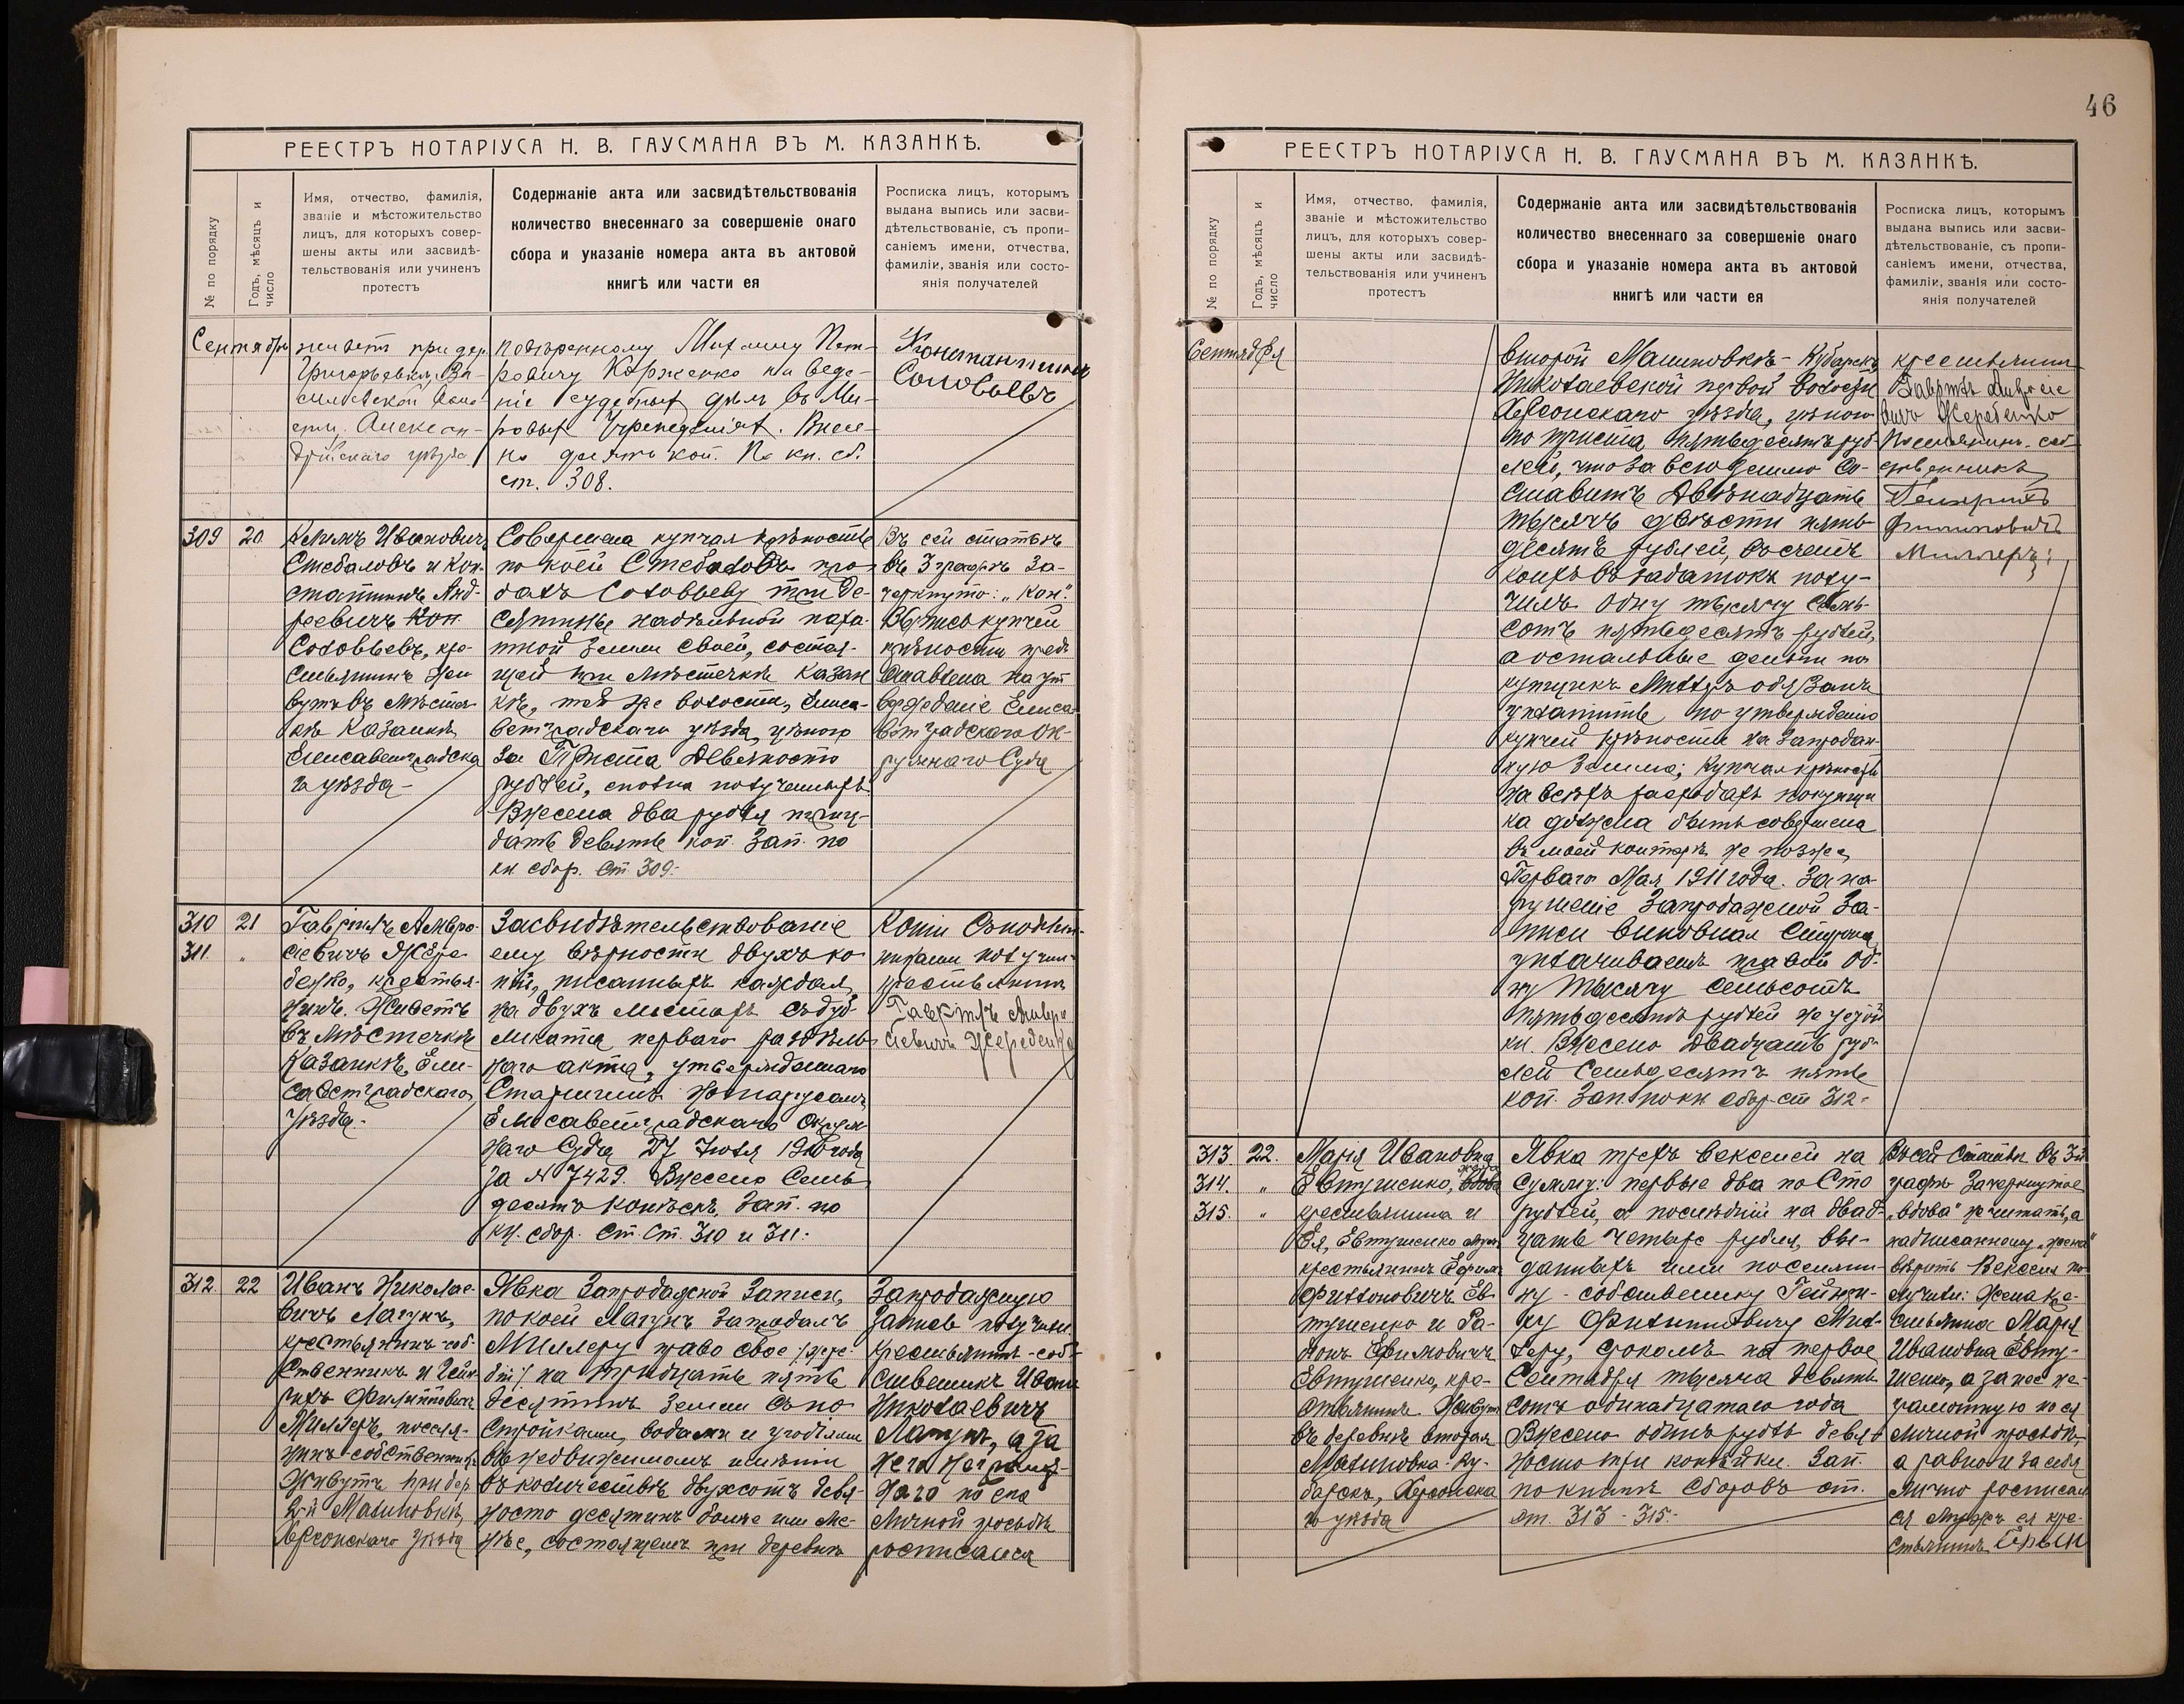 РЕЕСТРЪ НОТАРІУСА Н. В. ГАУСМАНА ВЪ М. КАЗАНКѢ.
№ по порядку
Годъ, мѣсяцъ и
число
Имя, отчество, фамилія,
званіе и мѣстожительство
лицъ, для которыхъ совер-
шены акты или засвидѣ-
тельствованія или учиненъ
протестъ
Содержаніе акта или засвидѣтельствованія
количество внесеннаго за совершеніе онаго
сбора и указаніе номера акта въ актовой
книгѣ или части ея
Росписка лицъ, которымъ
выдана выпись или засви-
дѣтельствованіе, съ пропи-
саніемъ имени, отчества,
фамиліи, званія или состо-
янія получателей
Сентября
живетъ при дер.
Григорьевкѣ, Ва-
сильевской воло-
сти, Алексан-
дрійскаго уѣзда
повѣренному Михаилу Пет-
ровичу Корженко на веде-
ніе судебныхъ дѣлъ въ Ми-
ровыхъ Учрежденіяхъ. Внесе-
но десять коп. По кн. сб.
ст. 308.
Константинъ
Соловьевъ
309 20
Ивановичъ
Стебаловъ и Кон-
стантинъ Анд-
реевичъ Кон
Соловьевъ, кре-
стьянинъ Жи
вутъ въ мѣстеч-
кѣ Казанкѣ,
Елисаветградска
го уѣзда -
Совершена купчая крѣпость
по коей Стебаловъ про-
далъ Соловьеву три де-
сятины надѣльной поле-
ной земли своей, состоя-
щей при мѣстечкѣ Казан
кѣ, той же волости, Елиса-
ветградскаго уѣзда, цѣною
за Триста Девяносто
рублей, сполна полученныхъ.
Внесена два рубля трид-
цать девять коп. Зап. по
кн сбор. Ст. 309.-
Въ сей статьѣ
въ 3 графѣ за-
черкнуто: „Кон".
Выпись купчей
крѣпости пред
ставлена на ут
вержденіе Елиса
ветградскаго Ок-
ружнаго Суда
310 21
311. „
Гавріилъ Амвро-
сіевичъ Жере-
бенко, крестья-
нинъ. Живетъ
въ мѣстечкѣ
Казанкѣ, Ели-
саветградскаго
уѣзда.-
Засвидѣтельствованіе
ему вѣрности двухъ ко
пій, писанныхъ каждая
на двухъ листахъ съ дуб
ликата перваго раздѣль-
наго акта, утвержденнаго
Старшимъ Нотаріусомъ
Елисаветградскаго Окруж
наго Суда 27 Іюля 1910 года
за № 7429. Внесено Семь
десятъ копѣекъ. Зап. по
кн. сбор. Ст. Ст. 310 и 311.-
Копіи съ подлин-
никами получилъ
крестьянинъ
Гавріилъ Амвро
сіевичъ Жеребенко
312. 22
Иванъ Николае-
вичъ Лагунъ,
крестьянинъ-соб-
ственникъ и Гейн
рихъ Филипповичъ
Миллеръ, поселя-
нинъ собственникъ
Живутъ при дер.
2-й Малиновкѣ,
Херсонскаго уѣзда
Явка запродажной записи,
по коей Лагунъ запродалъ
Миллеру право свое /
на тридцать пять
десятинъ земли съ по
стройками, водами и угодіями
въ недвижимомъ имѣніи
въ количествѣ двухсотъ девя-
носто десятинъ болѣе или ме-
нѣе, состоящемъ при деревнѣ
Запродажную
запись получили
крестьянинъ-соб-
ственникъ Иванъ
Николаевичъ
Лагунъ, а за
него неграмот-
наго по его
личной просьбѣ
росписался
46
РЕЕСТРЪ НОТАРІУСА Н. В. ГАУСМАНА ВЪ М. КАЗАНКѢ.
№ по порядку
Годъ, мѣсяцъ и
число
Имя, отчество, фамилія,
званіе и мѣстожительство
лицъ, для которыхъ совер-
шены акты или засвидѣ-
тельствованія или учиненъ
протестъ
Содержаніе акта или засвидѣтельствованія
количество внесеннаго за совершеніе онаго
сбора и указаніе номера акта въ актовой
книгѣ или части ея
Росписка лицъ, которымъ
выдана выпись или засви-
дѣтельствованіе, съ пропи-
саніемъ имени, отчества,
фамиліи, званія или состо-
янія получателей
Сентября
второй Малиновкѣ-
Николаевской первой волости
Херсонскаго уѣзда, цѣною
по триста пятьдесятъ руб-
лей, что за всю землю со-
ставитъ Двѣнадцать
тысячъ двѣсти пять-
десятъ рублей, въ счетъ
коихъ въ задатокъ полу-
чилъ одну тысячу семь-
сотъ пятьдесятъ рублей,
а остальныя деньги по-
купщикъ Миллеръ обязанъ
уплатить по утвержденію
купчей крѣпости на запродан-
ную землю; Купчая крѣпость
на всѣхъ расходахъ покупщи
ка должна быть совершена
въ моей конторѣ не позже
Перваго Мая 1911 года. За на-
рушеніе запродажной за-
писи виновная сторона
уплачиваетъ правой од-
ну тысячу семьсотъ
пятьдесятъ рублей неустой
ки. Внесено двадцать руб-
лей Семьдесятъ пять
коп. Зап. по кн сбор. ст 312-
крестьянинъ
Гаврилъ Амвросіе
вичъ Жеребенко
Поселянинъ-соб-
ственникъ
Гейнрихъ
Филипповичъ
Миллеръ:
313 22.
314. „
315. „
Марія Ивановна
жена
Евтушенко, вдова
крестьянина и
ея, Евтушенко мужъ
крестьянинъ Ефимъ
Филипповичъ Ев-
тушенко и
Ефимовичъ
Евтушенко, кре-
стьянинъ. Живутъ
въ деревнѣ вторая
Малиновка-
Херсонска
го уѣзда
Явка трехъ векселей на
сумму: первые два по Сто
рублей, а послѣдній на двад-
цать четыре рубля, вы-
данныхъ ими поселяни-
ну-собственнику Гейнри-
ху Филипповичу Мил-
леру, срокомъ на первое
Сентября тысяча девять
сотъ одинадцатаго года
Внесено одинъ рубль девя-
носто три копѣйки. Зап.
по книгѣ сборовъ ст.
ст. 313 - 315.-
Въ сей статьѣ въ 3й
графѣ зачеркнутое
„вдова" не читать, а
надписанному „жена"
вѣрить Векселя по-
лучили: Жена кре-
стьянина Марія
Ивановна Евту-
шенко, а за нее не-
грамотную по ея
личной просьбѣ,
а равно и за себя
лично росписал
ся мужъ ея кре-
стьянинъ